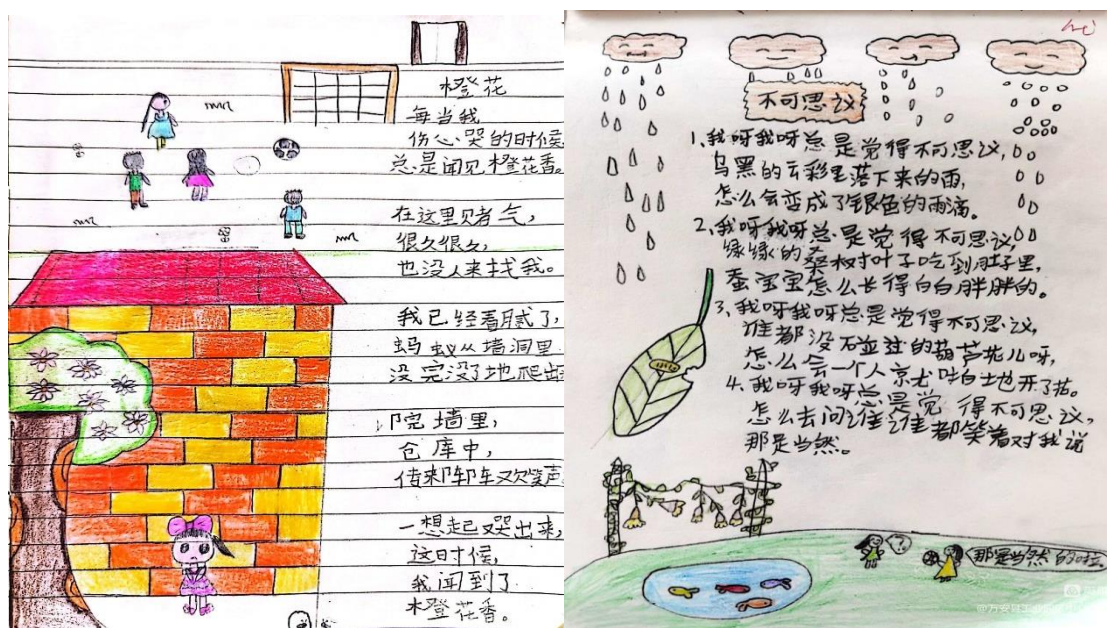 橙花
每当我
伤心哭的时候
总是闻见橙花香。
在这里赌气,
很久很久,
也没人来找我。
我已经看腻了,
蚂蚁从墙洞里
没完没了地爬出
院墙里,
仓库中,
传来阵阵欢笑声
一想起哭出来,
这时候,
我闻到了
橙花香。
不可思议
1、我呀我呀总是觉得不可思议,
乌黑的云彩里落下来的雨,
怎么会变成了银色的雨滴。
2、我呀我呀总是觉得不可思议,
绿绿的桑树叶子吃到肚子里,
蚕宝宝怎么长得白白胖胖的。
3、我呀我呀总是觉得不可思议,
谁都没碰过的葫芦花儿呀,
怎么会一个人就啪地开了花。
4、我呀我呀总是觉得不可思议,
怎么去问谁谁都笑着对我说
那是当然。
?
那是当然的啦
@万安县